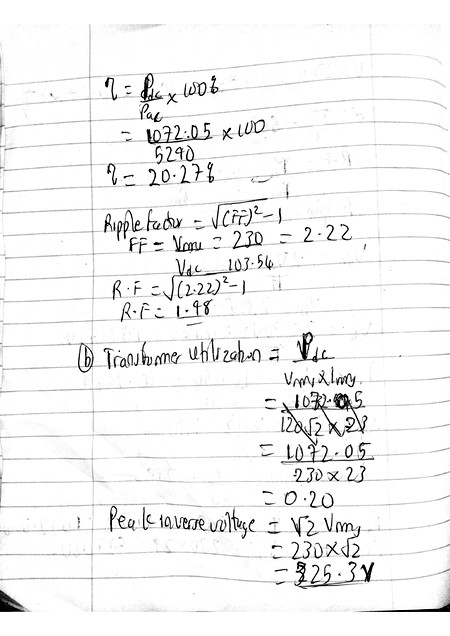 η = Pdc/Pac × 100%
= 1072.05/5290 × 100
η = 20.27%
Ripple factor = √(FF)² - 1
FF = Vrms/Vdc = 230/103.56 = 2.22
R.F = √(2.22)² - 1
R.F = 1.98
(b) Transformer utilization = Pdc/Vrms × Irms
= 1072.05/120√2 × 23
= 1072.05/230 × 23
= 0.20
Peak inverse voltage = √2 Vrms
= 230 × √2
= 325.3V